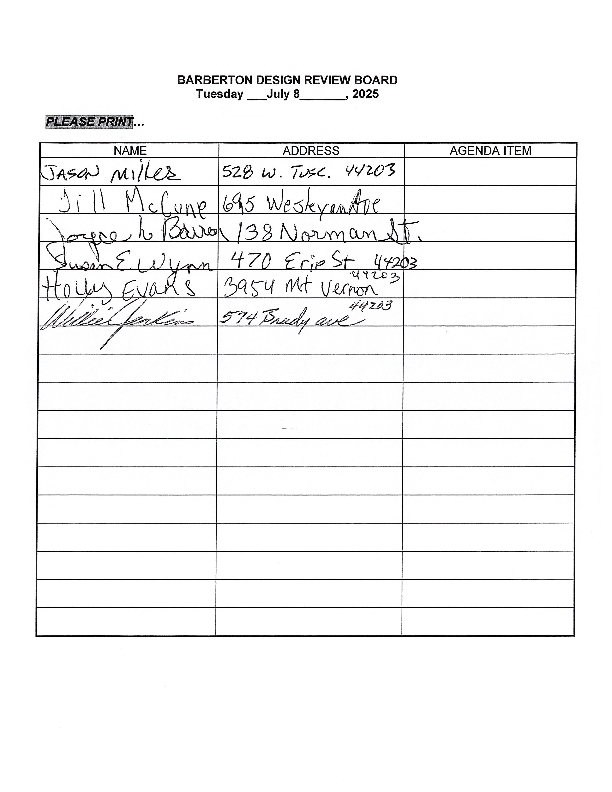 BARBERTON DESIGN REVIEW BOARD
Tuesday ___July 8_______, 2025
PLEASE PRINT...
NAME ADDRESS AGENDA ITEM
JASON MILLES 528 W. TUSC. 44203
Jill McCune 695 Wesleyan Ave
L Barron 138 Norman St.
Susan E. Wynn 470 Erie St 44203
Holly Evans 3954 Mt Vernon 44203
Willie Jenkins 574 Brady ave 44203